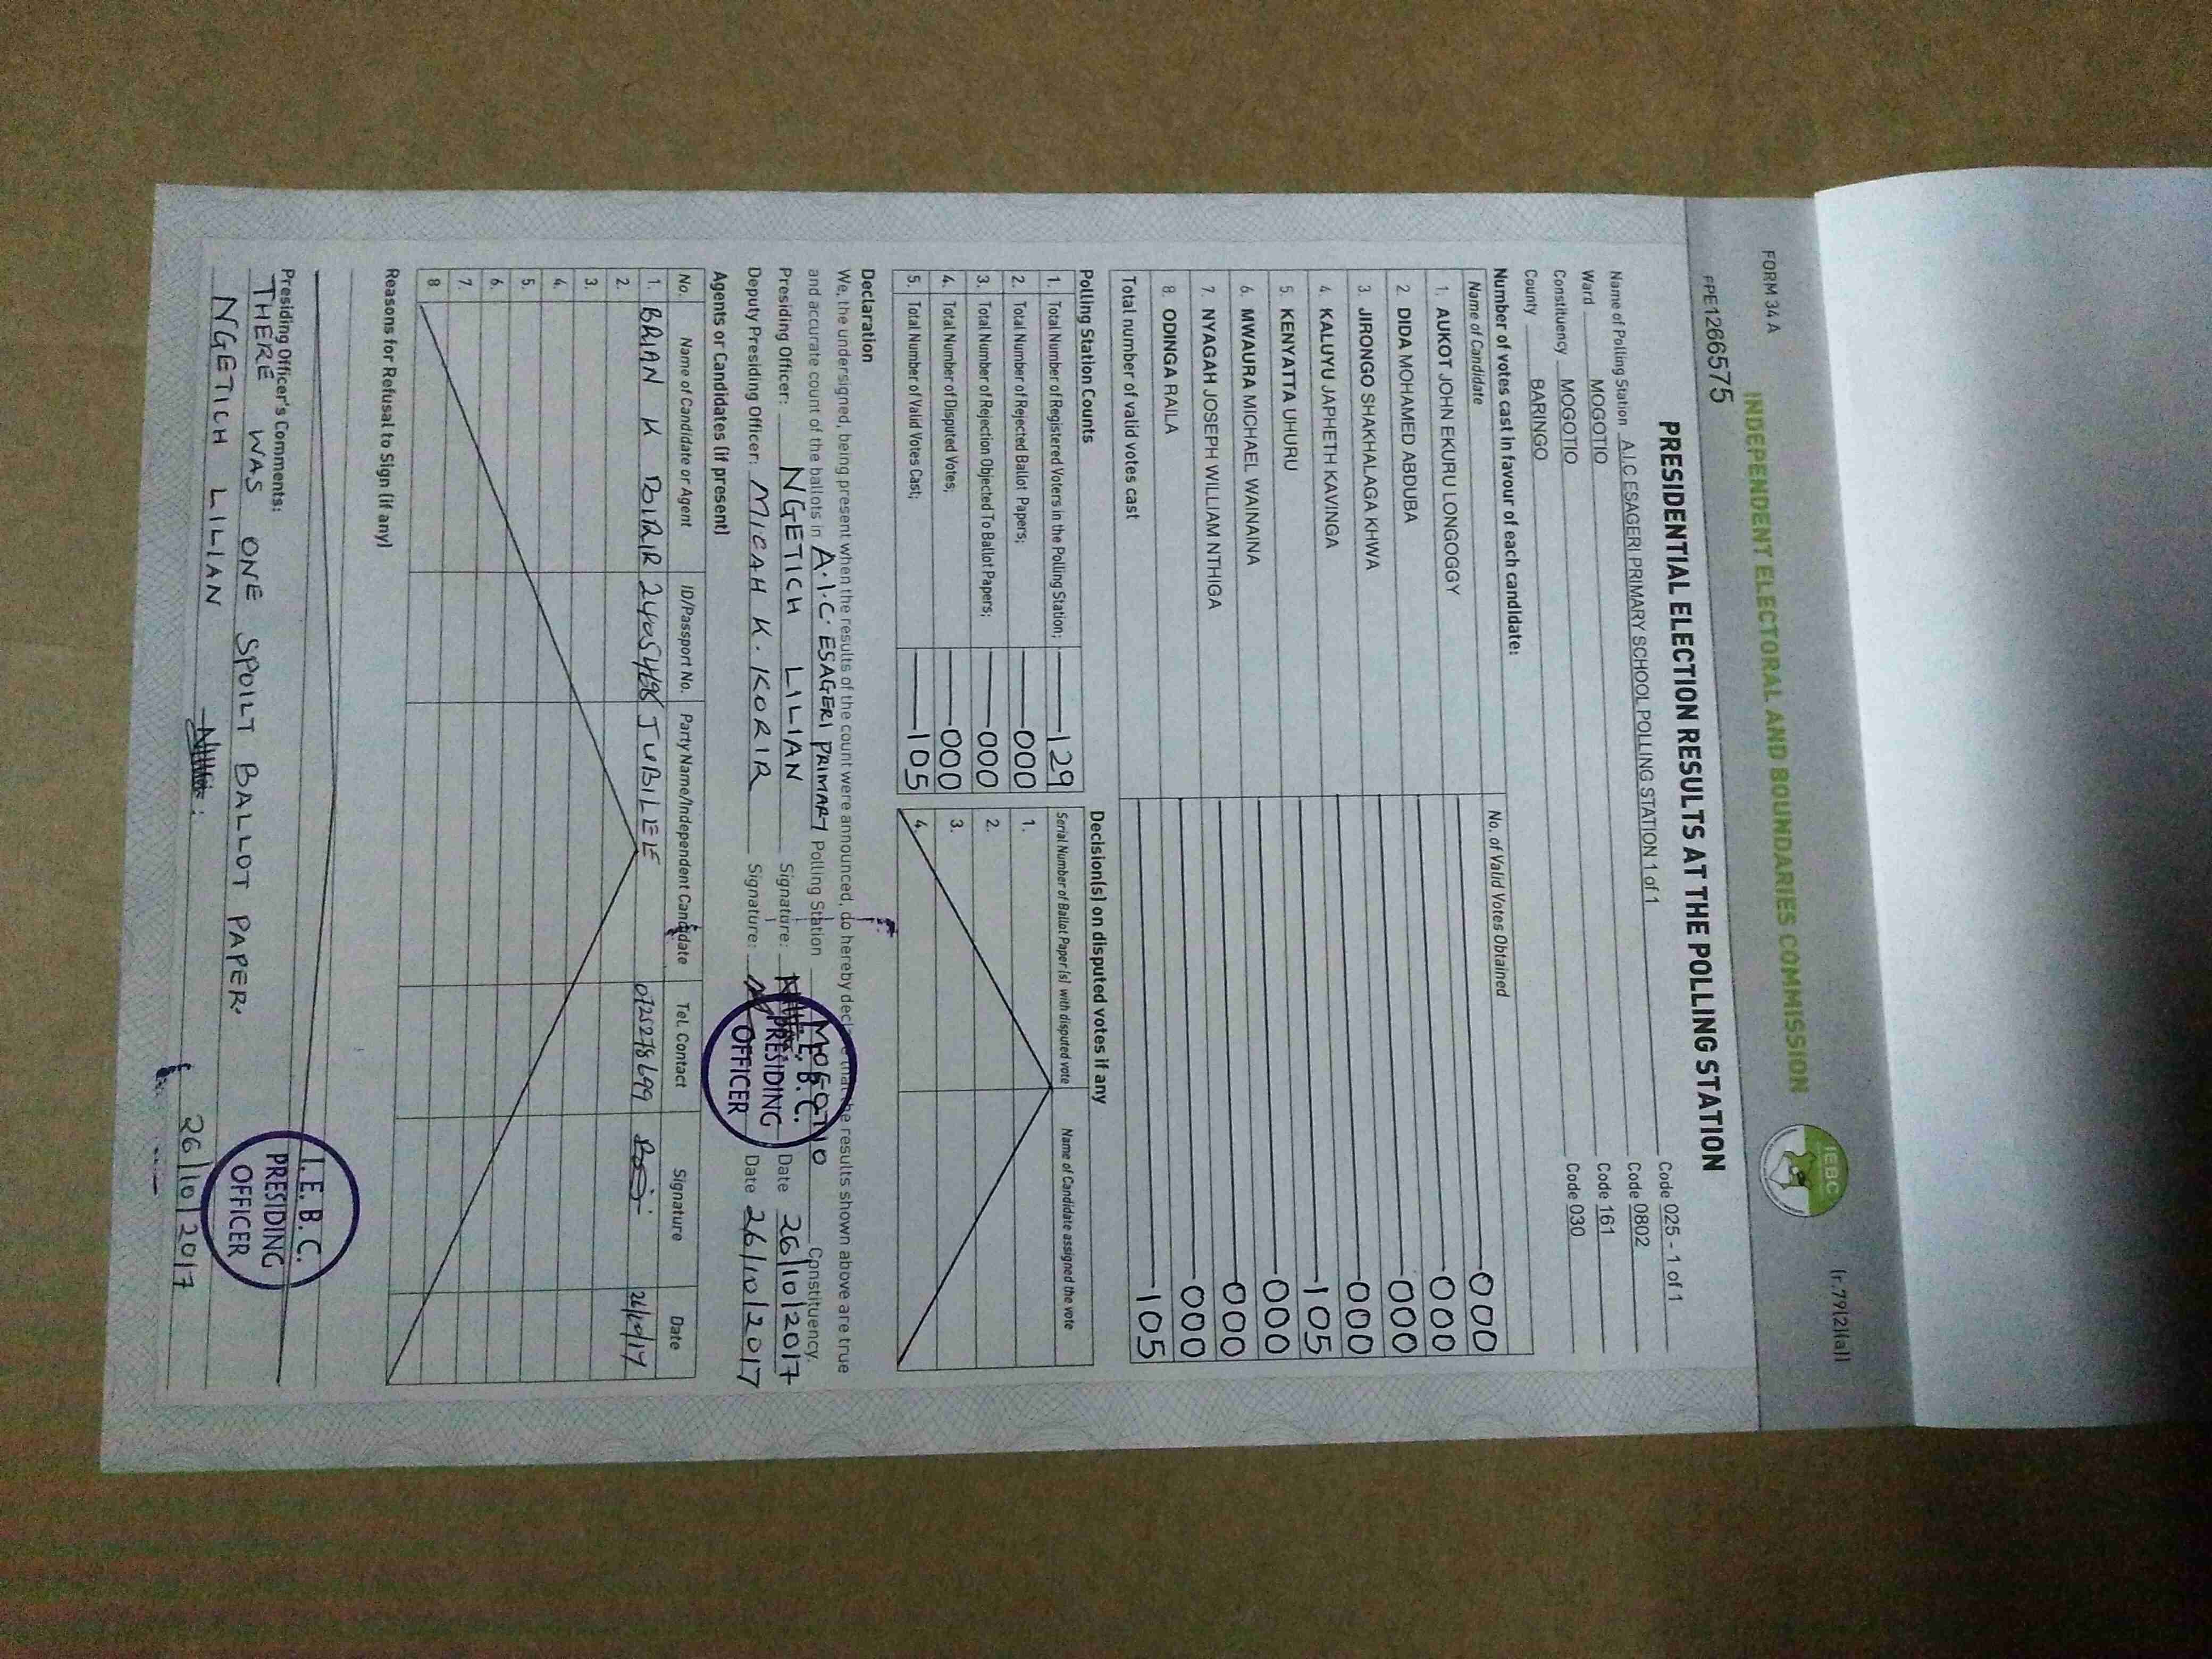 FORM 34 A
(r.79(2)(a))
INDEPENDENT ELECTORAL AND BOUNDARIES COMMISSION
IEBC
FPE1266575
PRESIDENTIAL ELECTION RESULTS AT THE POLLING STATION
Name of Polling Station A.I.C ESAGERI PRIMARY SCHOOL POLLING STATION 1 of 1 Code 025 - 1 of 1
Ward MOGOTIO Code 0802
Constituency MOGOTIO Code 161
County BARINGO Code 030
Number of votes cast in favour of each candidate:
Name of Candidate No. of Valid Votes Obtained
1. AUKOT JOHN EKURU LONGOGGY 000
2. DIDA MOHAMED ABDUBA 000
3. JIRONGO SHAKHALAGA KHWA 000
4. KALUYU JAPHETH KAVINGA 000
5. KENYATTA UHURU 105
6. MWAURA MICHAEL WAINAINA 000
7. NYAGAH JOSEPH WILLIAM NTHIGA 000
8. ODINGA RAILA 000
Total number of valid votes cast 105
Polling Station Counts
1. Total Number of Registered Voters in the Polling Station; 129
2. Total Number of Rejected Ballot Papers; 000
3. Total Number of Rejection Objected To Ballot Papers; 000
4. Total Number of Disputed Votes; 000
5. Total Number of Valid Votes Cast; 105
Decision(s) on disputed votes if any
Serial Number of Ballot Paper (s) with disputed vote Name of Candidate assigned the vote
1.
2.
3.
4.
Declaration
We, the undersigned, being present when the results of the count were announced, do hereby declare that the results shown above are true
and accurate count of the ballots in A.I.C. ESAGERI PRIMARY Polling Station MOGOTIO Constituency.
Presiding Officer: NGETICH LILIAN Signature: Date 26/10/2017
Deputy Presiding Officer: MICAH K. KORIR Signature: Date 26/10/2017
I.E.B.C.
PRESIDING
OFFICER
Agents or Candidates (if present)
No. Name of Candidate or Agent ID/Passport No. Party Name/Independent Candidate Tel. Contact Signature Date
1. BRIAN K BIRIR JUBILEE 0725278699 26/10/17
2.
3.
4.
5.
6.
7.
8
Reasons for Refusal to Sign (if any)
Presiding Officer's Comments:
THERE WAS ONE SPOILT BALLOT PAPER.
NGETICH LILIAN
26/10/2017
I.E.B.C.
PRESIDING
OFFICER